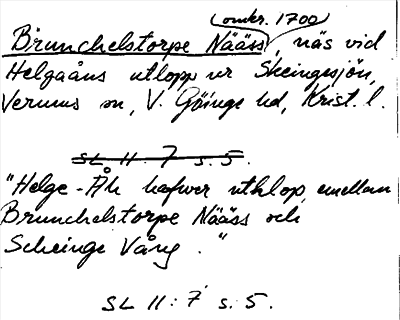 (omkr. 1700)
Brunchelstorpe Nääss, näs vid
Helgeåns utlopp ur Skeingesjön,
Verums sn, V. Göinge hd, Krist. l.
SL II 7 s. 5.
"Helge-Åh hafwer uthlop emellan
Brunchelstorpe Nääss och
Scheinge Vång."
SL II: 7 s. 5.